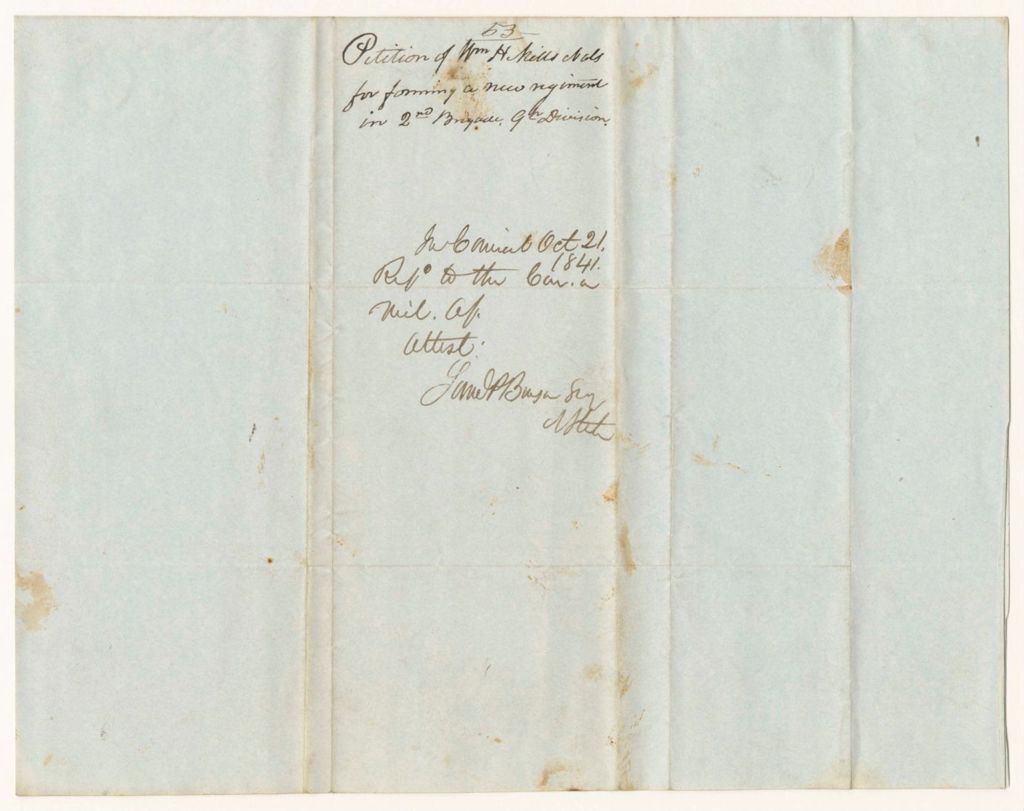 53
Petition of Wm H. Mills & als
for forming a new regiment
in 2nd Brigade, 9th Division.
In Council Oct 21,
1841.
Refd to the Com. on
Mil. Af.
Attest:
Saml P Benson Secy
of State